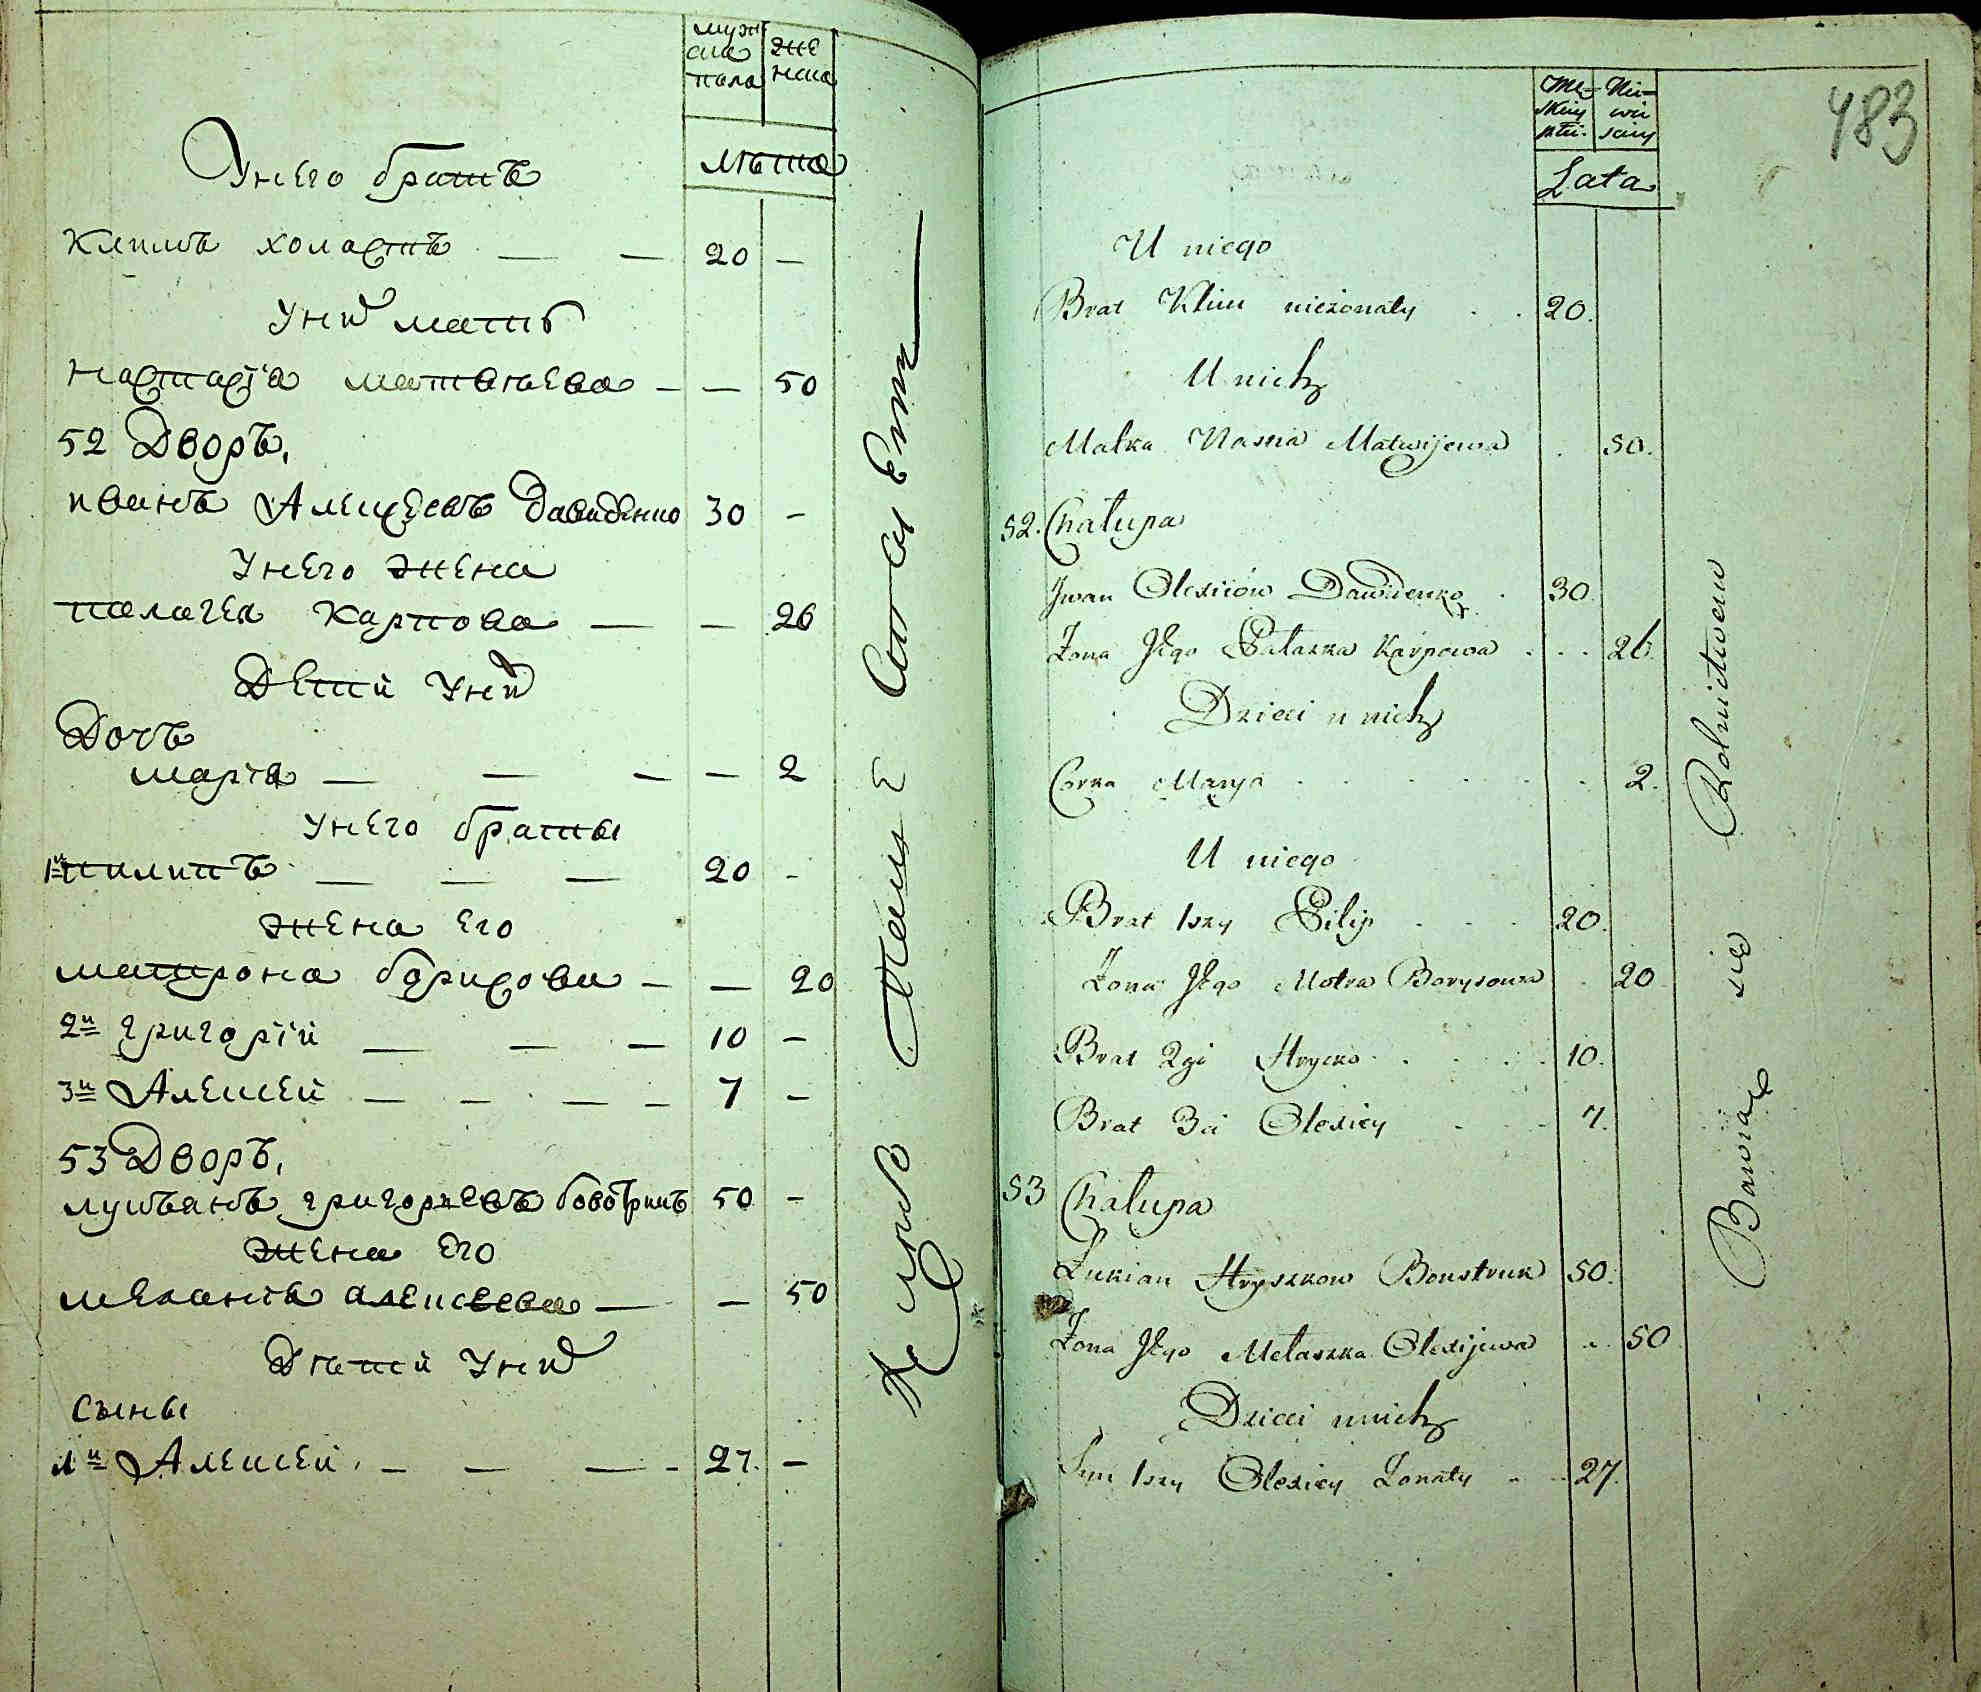 муж
ска
пола
же
нска
лѣта
Унего братъ
Климъ холастъ — — 20 —
Уних мать
Настасїа матвѣева — — 50
52 Дворъ,
иванъ Алексѣевъ Давиденко 30 —
Унего жена
палагея Карпова — — 26
Дети Уних
Дочъ
марїа — — — — 2
Унего браты
1й пилипъ — — — 20 -
жена его
матрона борисова — — 20
2й григорїй — — — 10 —
3й Алексей — — — — 7 —
53 Дворъ,
лукъянъ григорьевъ 50 —
жена его
меланїа алексеева — — 50
Дѣти Уних
сыны
1й Алексей — — — 27. —
483
Mę-
skiey
płci.
Nie-
wie
sciey
Lata
U niego
Brat Klim nieżonaty . . 20.
U nich
Matka Nasria Matwijewa . 50.
52. Chałupa
Jwan Olexiiow Dawidenko . 30.
Zona Jego Pałazka Karpowa . . . 26.
Dzieci u nich
Corka Marya . . . . . 2.
U niego
Brat 1szy Pilip . . . 20.
Zona Jego Motra Borysowa . 20
Brat 2gi Hrycko . . . . 10.
Brat 3ci Olexiey . . . 7.
53 Chałupa
Łukian Hryszkow Boustruk 50.
Zona Jego Mełaszka Olexijewa . . 50
Dzieci unich
Syn 1szy Olexiey Zonaty . . 27.
Bawią się Rolnictwem